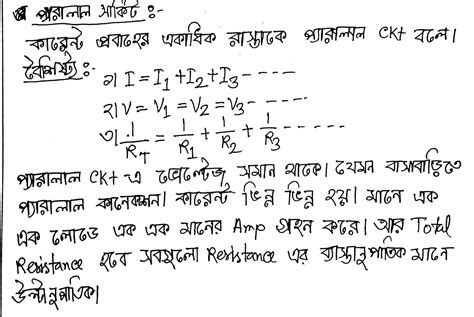 প্যারালাল সার্কিট ঃ-
কারেন্ট প্রবাহের একাধিক রাস্তাকে প্যারালাল CKt বলে।
বৈশিষ্ট্য ঃ-
১) I = I₁ + I₂ + I₃ - - - - -
২) V = V₁ = V₂ = V₃ - - - - !
৩) 1/R_T = 1/R₁ + 1/R₂ + 1/R₃ - - - - - -
প্যারালাল CKt এ ভোল্টেজ সমান থাকে। যেমন বাসাবাড়িতে
প্যারালাল কানেকশন। কারেন্ট ভিন্ন ভিন্ন হয়। মানে এক
এক লোডে এক এক মানের Amp গ্রহন করে। আর Total
Resistance হবে সবগুলো Resistance এর ব্যাস্তানুপাতিক মানে
উল্টানুপাতিক।